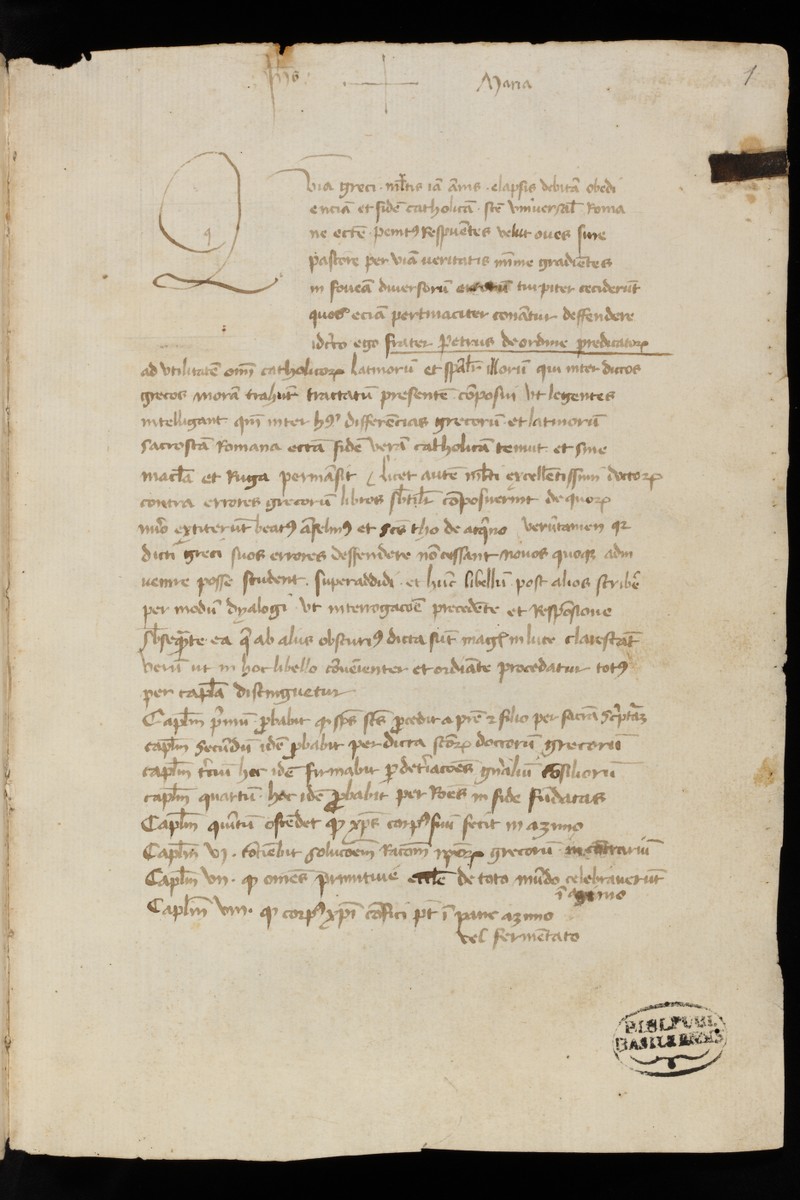 Jhs Maria 1
Quia greci · ml̄tis iā ānis · elapsis debitā obedi
enciā et fidē catholicā · stē vniversal̄ Roma
ne eccē · penitꝰ Respuētes velut oues sine
pastore per viā ueritatis mīme gradiētes
in foueā diuersorū errorū turpiter ceciderūt
quos eciā pertinaciter conātur deffendere
idcīrco ego frater Petrus de ordine predicatorꝝ
ad vtilitatē oīm catholicorꝝ latinorū et spāl̄r illorū qui inter dictos
grecos morā trahūt tractatū presentē cōposui vt legentes
intelligant qm̄ inter hꝰ differēcias grecorū · et latinorū
sacrosctā Romana ecctā fidē verā catholicā tenuit et sine
macl̄a et Ruga permāsit / licet autē ml̄ti excellētissimi doctorꝝ
contra errores grecorū libros sb̄til̄r cōposuerint de quorꝝ
nūo extiterūt beatꝰ āselmꝰ et scs tho de aq̄no verūtamen qꝛ
dicti greci suos errores deffendere nō cessant nouos quoqꝫ adin
uenire posse student · superaddidi · et hūc libellū post alios scribē
per modū dyalogi · vt interrogacoē precedēte et Respōsione
sb̄seqn̄te ea q̄ ab aliis obscuriꝰ dicta sūt magꝭ in luce clarescāt
verū ut in hoc libello cōueniēter et ordīate procedatur totꝰ
per capl̄a distinguetur
Capl̄m p̄mū probabit qꝫ sps scs procedit a prē ⁊ filio per sacrā sc̄ptūraꝫ
capl̄m secūdū idē probabit per dicta sctorꝝ doctorū grecorū
capl̄m tr̄ciū hoc idē firmabit per deter̄īacoēs gn̄aliū cōsiliorū
capl̄m quartū · hoc idē probabit per Roēs in fide fūdatas
Capl̄m quītū ostēdet qꝫ xp̄s corpꝰ suū fecit in azimo
Capl̄m VI · cōtinēbit solucoēm Racōm grecorū in cōtrariū
Capl̄m VII · qꝫ omēs primitiue eccl̄e de toto mūdo celebrauerūt
ī azimo
Capl̄m VIII · qꝫ corpꝰ xp̄i cōfici pt̄ ī pane azimo
vel fermētato
BIBL. PUBL.
BASILEENSIS